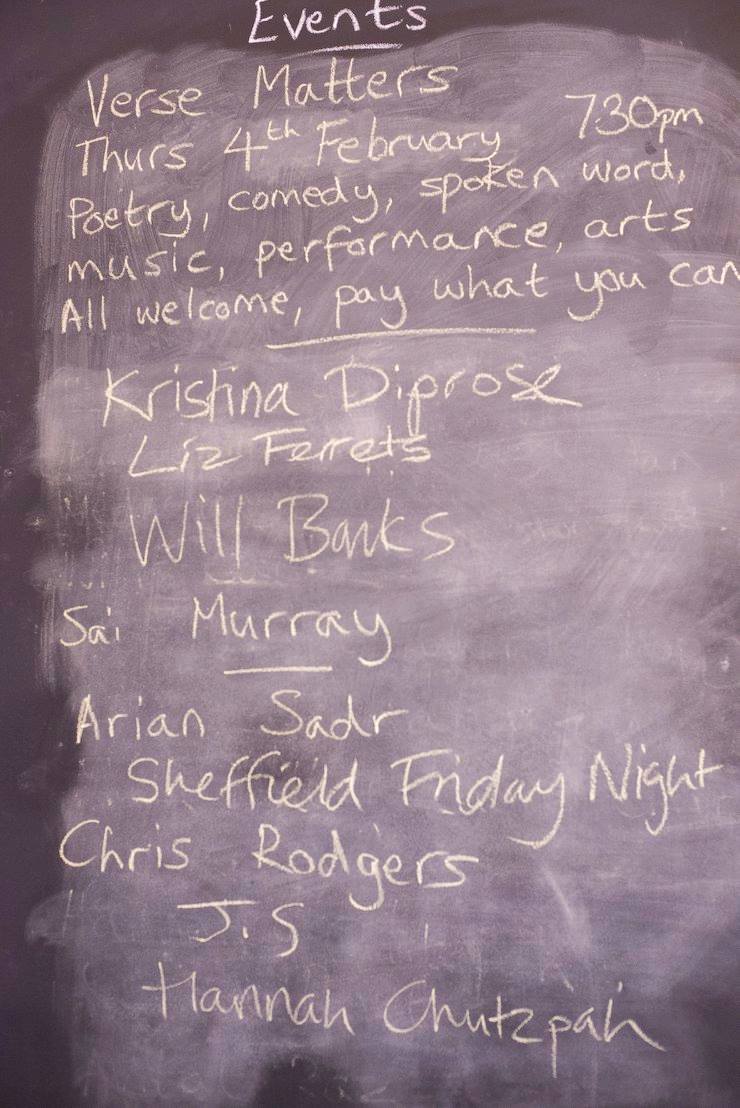 Events
Verse Matters
Thurs 4th February 7.30pm
Poetry, comedy, spoken word,
music, performance, arts
All welcome, pay what you can
Kristina Diprose
Liz Ferrets
Will Banks
Sai Murray
Arian Sadr
Sheffield Friday Night
Chris Rodgers
J.S
Hannah Chutzpah